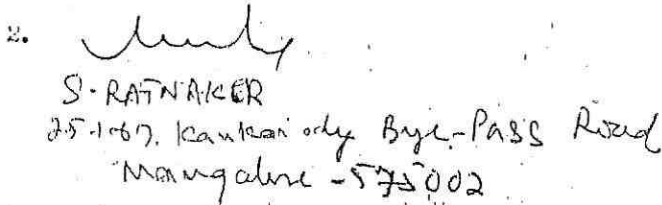 2.
S. RATNAKER
25-1-67, Kankanady Bye-Pass Road
Mangalore - 575002